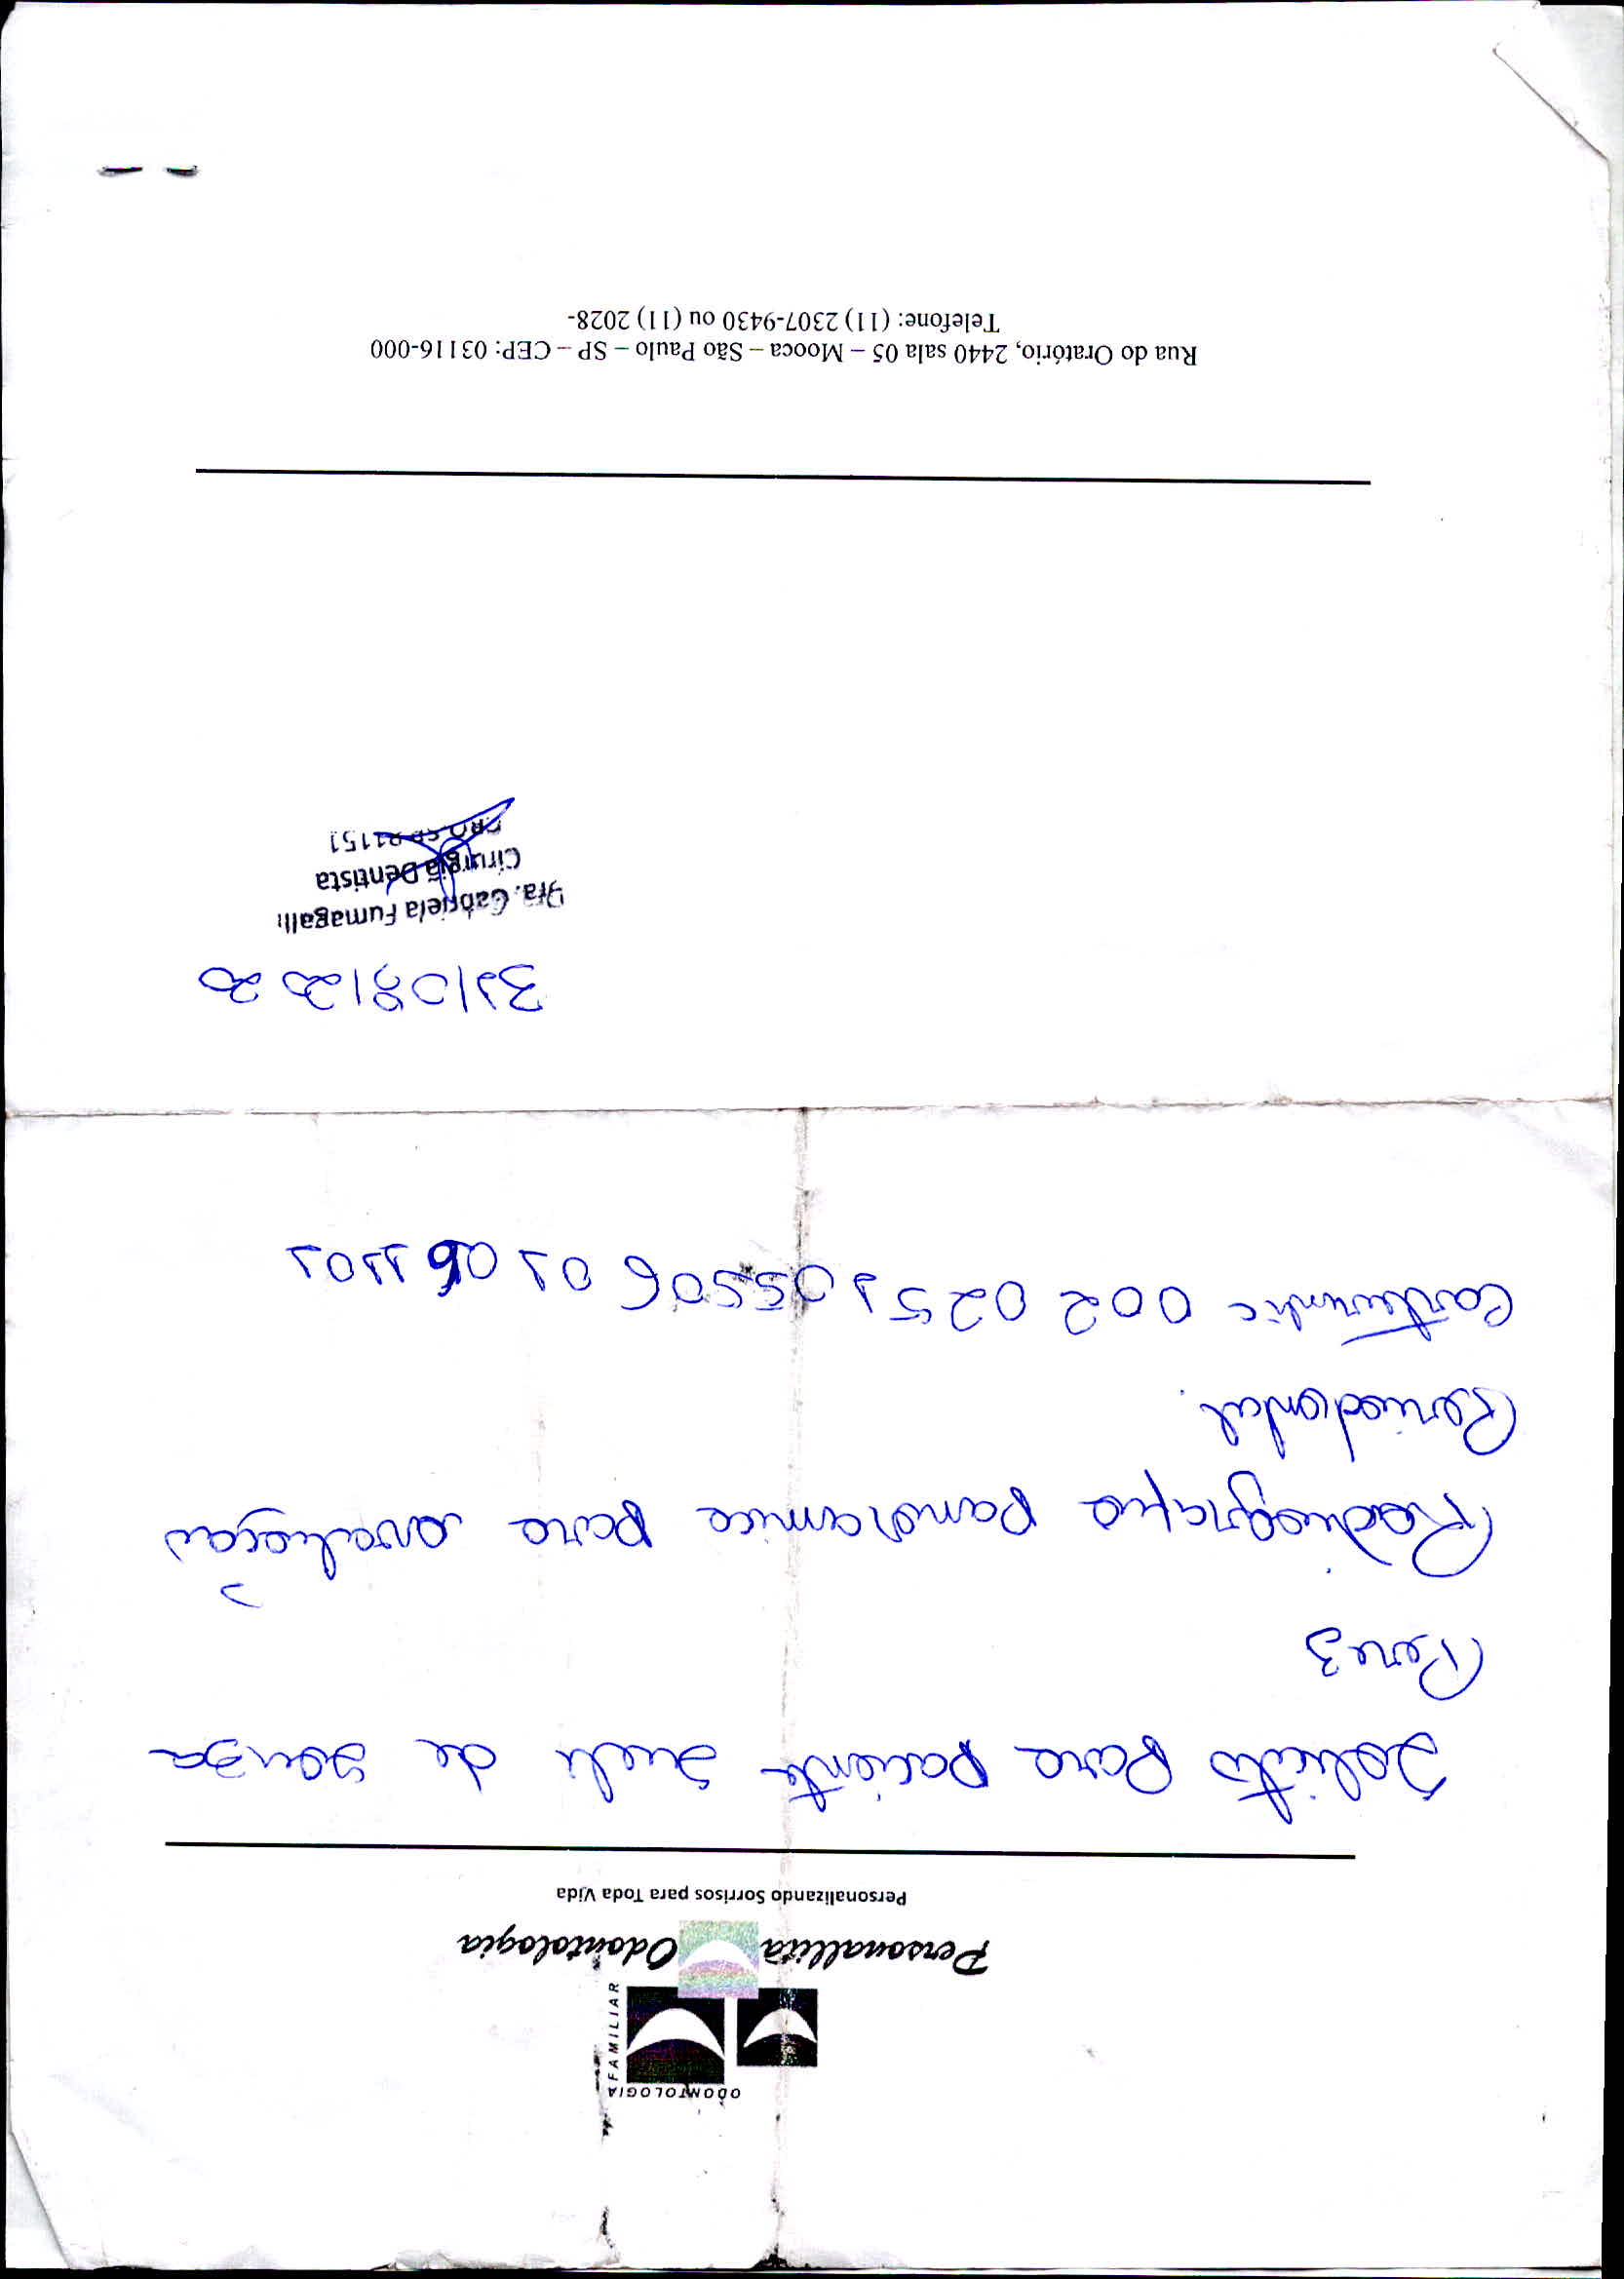 ODONTOLOGIA
FAMILIAR
Personallitá Odontologia
Personalizando Sorrisos para Toda Vida
Solicito para paciente Sueli de Souza
Radiografia panoramica para avaliação
Periodontal.
Carteirinha 002 0251 05506 01
31/08/2020
Dra. Gabriela Fumagalli
Cirurgiã Dentista
CRO SP
Rua do Oratório, 2440 sala 05 – Mooca – São Paulo – SP – CEP: 03116-000
Telefone: (11) 2307-9430 ou (11) 2028-